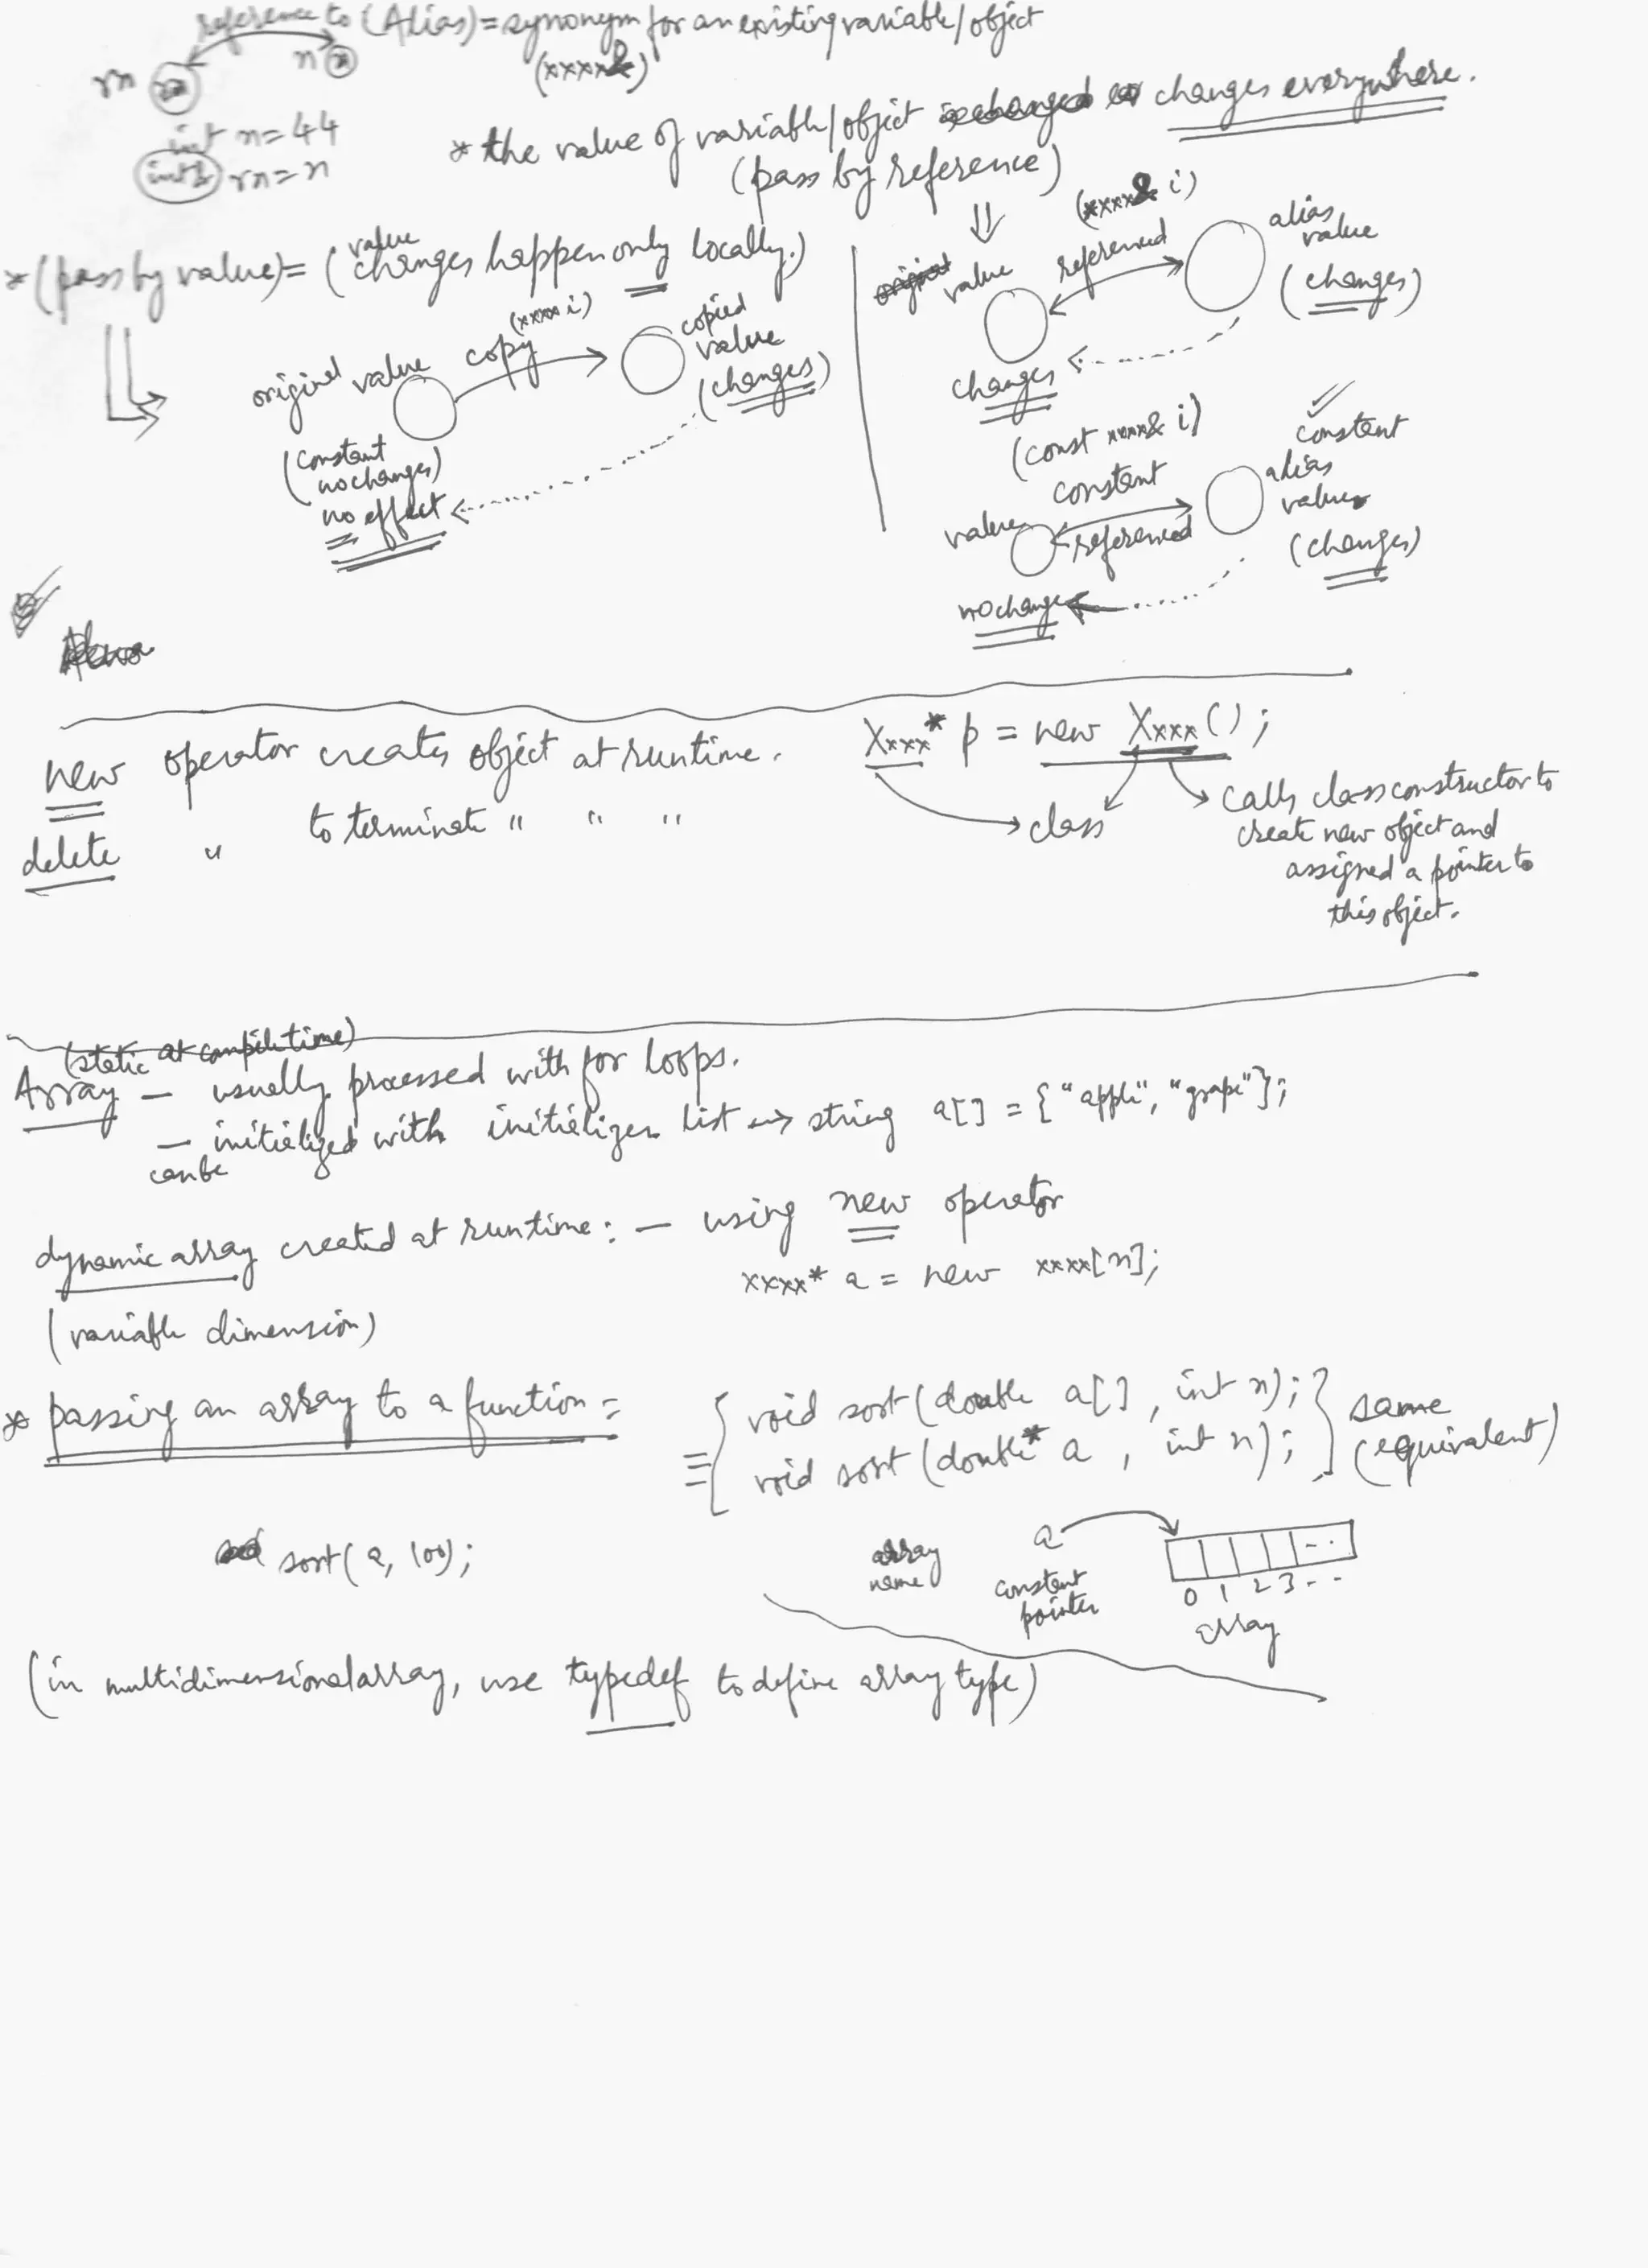 reference to (Alias) = synonym for an existing variable/object
(xxxx&)
rn
n
int n = 44
int& rn = n
* the value of variable/object changes everywhere.
(pass by reference)
* (pass by value) = (value changes happen only locally.)
original value
copy
(xxxx i)
copied value
(changes)
(constant
no changes)
no effect
value
referenced
(xxxx& i)
alias value
(changes)
changes
(const xxxx& i)
constant
value
constant
referenced
alias
value
(changes)
no change
new operator creates object at runtime.
delete " to terminate " " "
Xxxx* p = new Xxxx();
class
calls class constructor to
create new object and
assigned a pointer to
this object.
(static at compile time)
Array — usually processed with for loops.
— can be initialized with initializer list → string a[] = {"apple", "grape"};
dynamic array created at runtime: — using new operator
xxxx* a = new xxxx[n];
(variable dimension)
* passing an array to a function =
≡ { void sort(double a[], int n);
void sort(double* a, int n); } same
(equivalent)
sort(a, 100);
array
name
a
constant
pointer
0 1 2 3 - -
array
(in multidimensional array, use typedef to define array type)